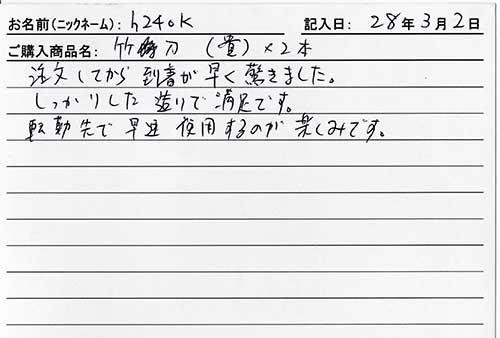 お名前(ニックネーム): h240K 記入日: 28年3月2日
ご購入商品名: 竹 刀 (貴)×2本
注文してから到着が早く驚きました。
しっかりした造りで満足です。
転勤先で早速使用するのが楽しみです。